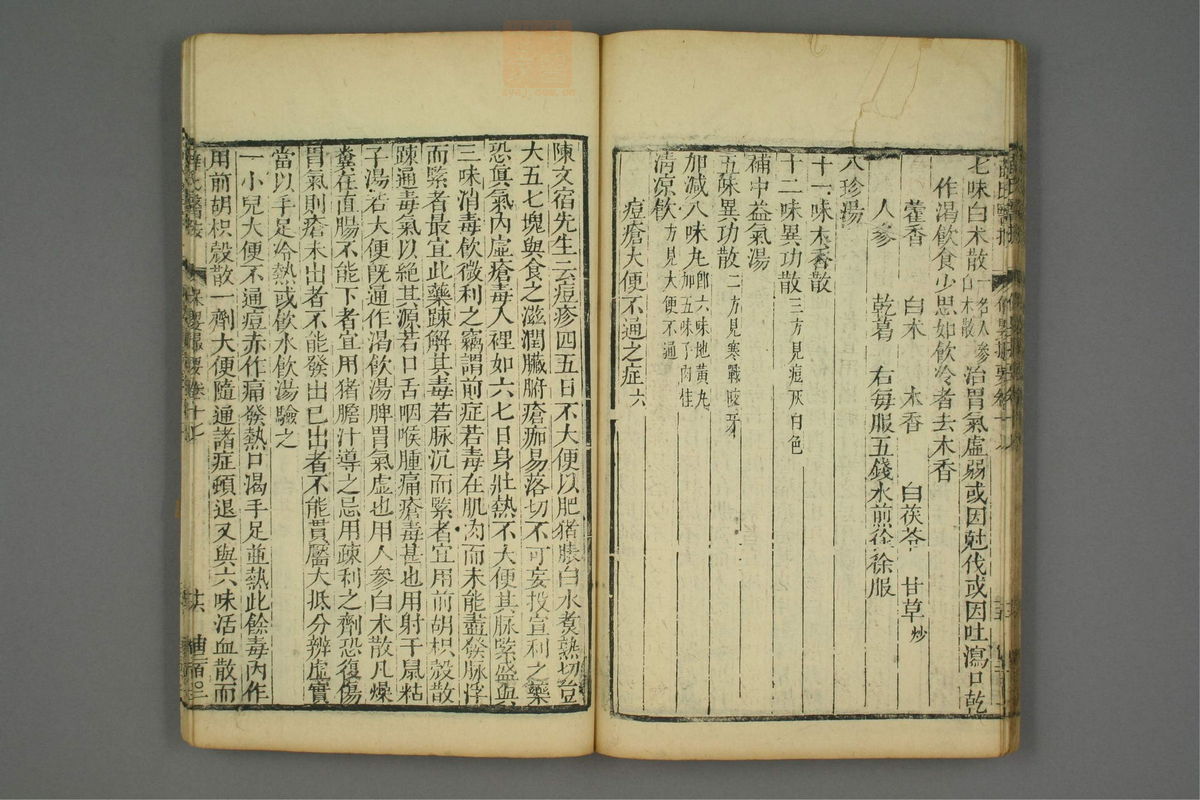 七味白朮散一名人參白朮散治胃氣虛弱或因尅伐或因吐瀉口乾
作渴飲食少思如飲冷者去木香
藿香 白朮 木香 白茯苓 甘草炒
人參 乾葛 右每服五錢水煎徐徐服
八珍湯
十一味木香散
十二味異功散三方見痘灰白色
補中益氣湯
五味異功散二方見寒戰咬牙
加減八味丸即六味地黃丸加五味子肉桂
清涼飲方見大便不通
痘瘡大便不通之症六
陳文宿先生云痘疹四五日不大便以肥猪臕白水煮熟切荳
大五七塊與食之滋潤臟腑瘡痂易落切不可妄投宣利之藥
恐眞氣內虛瘡毒入裡如六七日身壯熱不大便其脉緊盛與
三味消毒飲微利之竊謂前症若毒在肌肉而未能盡發脉浮
而緊者最宜此藥踈解其毒若脉沉而緊者宜用前胡枳殼散
踈通毒氣以絶其源若口舌咽喉腫痛瘡毒甚也用射干鼠粘
子湯若大便旣通作渴飲湯脾胃氣虛也用人參白朮散凡燥
糞在直腸不能下者宜用猪膽汁導之忌用疎利之劑恐復傷
胃氣則瘡未出者不能發出已出者不能貫靨大抵分辨虛實
當以手足冷熱或飲水飲湯驗之
一小兒大便不通痘赤作痛發熱口渴手足並熱此餘毒內作
用前胡枳殼散一劑大便隨通諸症頓退又與六味活血散而
薛氏醫按 保嬰撮要卷十七